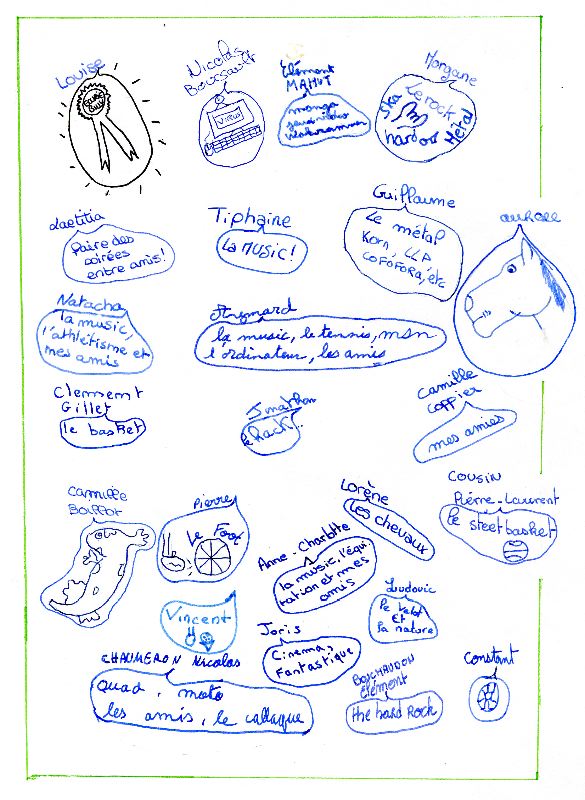 Louise
Nicolas
Boursault
Virus
Clément
MAHUT
manga
jeux vidéos
Morgane
Le rock
Ska
hardcore
Métal
Laetitia
faire des
soirées
entre amis!
Tiphaine
la music!
Guillaume
Le métal
Korn, LLP
COFÓFORA, etc
aurore
Natacha
la music,
l'athlétisme et
mes amis
Aymard
la music, le tennis, msn
l'ordinateur, les amis
Clement
Gillet
le basket
Jonathan
le hack
Camille
Coffier
mes amies
Camille
Pierre
Le Foot
Lorène
les chevaux
COUSIN
Pierre-Laurent
le street basket
Anne-Charlotte
la music, l'équi
tation et mes
amis
Vincent
Ludovic
le vélo
Et
la nature
Joris
Cinema,
Fantastique
CHAUMERON Nicolas
quad, moto
les amis, le
BOUCHAUDON
Clément
the hard Rock
Constant